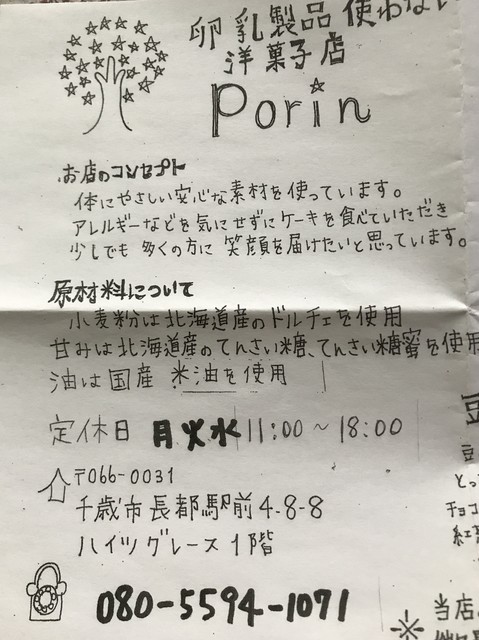 卵乳製品 使わない
洋菓子店
Porin
お店のコンセプト
体にやさしい安心な素材を使っています。
アレルギーなどを気にせずにケーキを食べていただき
少しでも 多くの方に 笑顔を届けたいと思っています。
原材料について
小麦粉は北海道産のドルチェを使用
甘みは北海道産のてんさい糖、てんさい糖蜜を使用
油は国産 米油を使用
定休日 月火水 11:00～18:00
〒066-0031
千歳市長都駅前4-8-8
ハイツグレース1階
080-5594-1071
豆
とっ
チョコ
当店